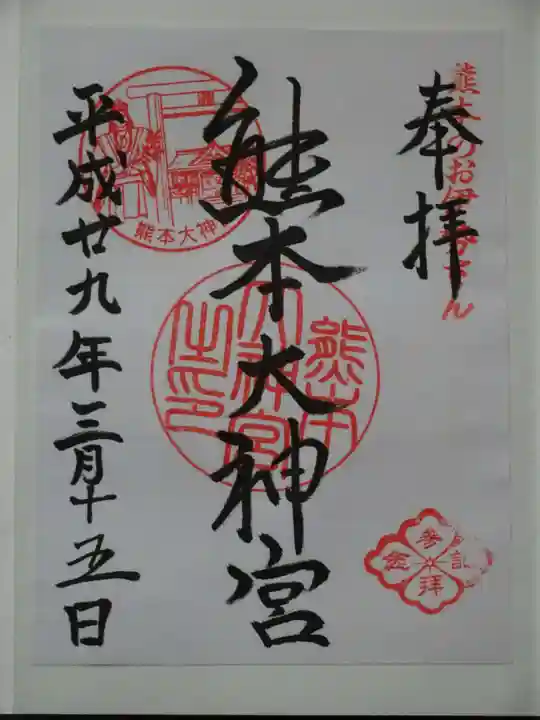 奉拝
熊本のお伊勢さん
熊本大神宮
熊本大神宮之印
熊本大神
参拝記念
平成廿九年三月十五日